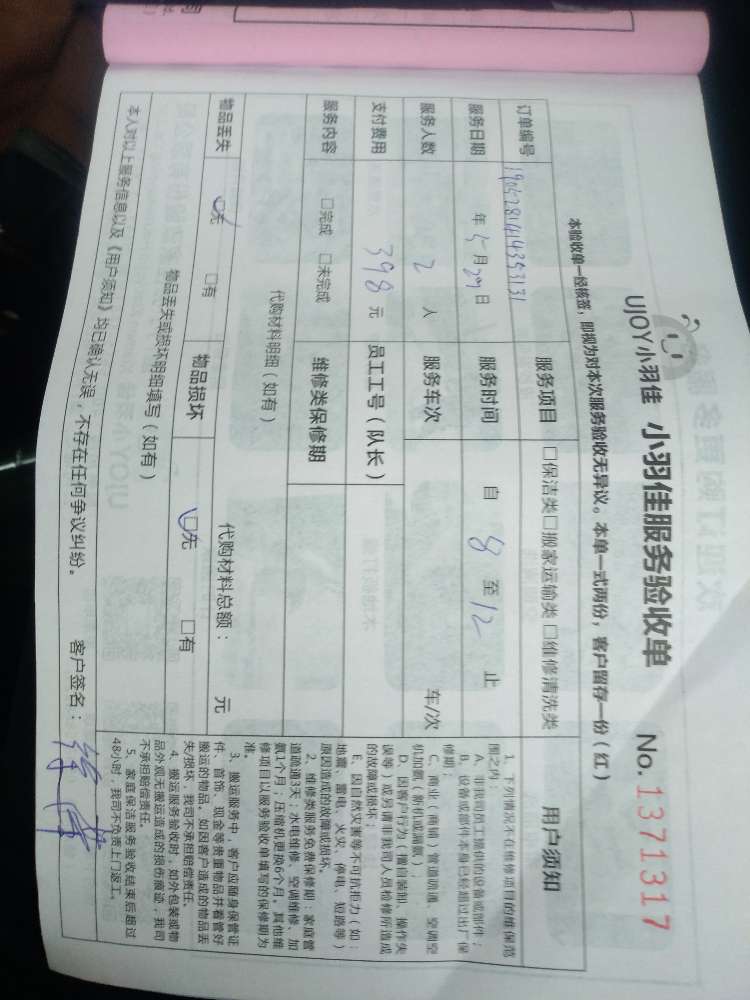 UJOY小羽佳 小羽佳服务验收单 No. 1371317
本验收单一经核签，即视为对本次服务验收无异议。本单一式两份，客户留存一份（红）
订单编号 服务项目 □保洁类□搬家运输类□维修清洗类
服务日期 年 5 月 29 日 服务时间 自 8 至 12 止
服务人数 2 人 服务车次 车/次
支付费用 398 元 员工工号（队长）
服务内容 □完成 □未完成 维修类保修期
代购材料明细（如有） 代购材料总额： 元
物品丢失 □无 □有 物品损坏 □无 □有
物品丢失或损坏明细填写（如有）
本人对以上服务信息以及《用户须知》均已确认无误，不存在任何争议纠纷。 客户签名：
用户须知
1、下列情况不在维修项目的维保范
围之内：
A、非我司员工提供的设备或部件；
B、设备或部件本身已经超过出厂保
修期；
C、商业（商铺）管道疏通、空调空
机加氨（新机或漏氨）；
D、因客户行为（擅自装卸、操作失
误等）或另请非我司人员检修所造成
的故障或损坏；
E、因自然灾害等不可抗拒力（如：
地震、雷电、火灾、停电、短路等）
原因造成的故障或损坏。
2、维修类服务免费保修期：家庭管
道疏通3天；水电维修、空调维修、加
氨1个月；压缩机更换6个月。其他维
修项目以服务验收单填写的保修期为
准。
3、搬运服务中，客户应随身保管证
件、首饰、现金等贵重物品并看管好
搬运的物品，如因客户造成的物品丢
失/损坏，我司不承担赔偿责任。
4、搬运服务验收时，如外包装或物
品外观无搬运造成的损伤痕迹，我司
不承担赔偿责任。
5、家庭保洁服务验收结束后超过
48小时，我司不负责上门返工。